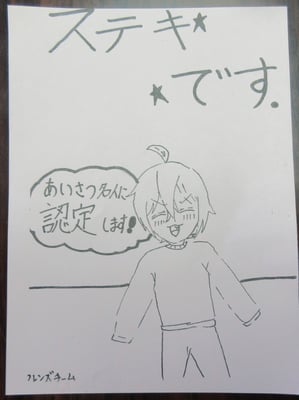 ステキ★
★です.
あいさつ名人に
認定します!
フレンズチーム